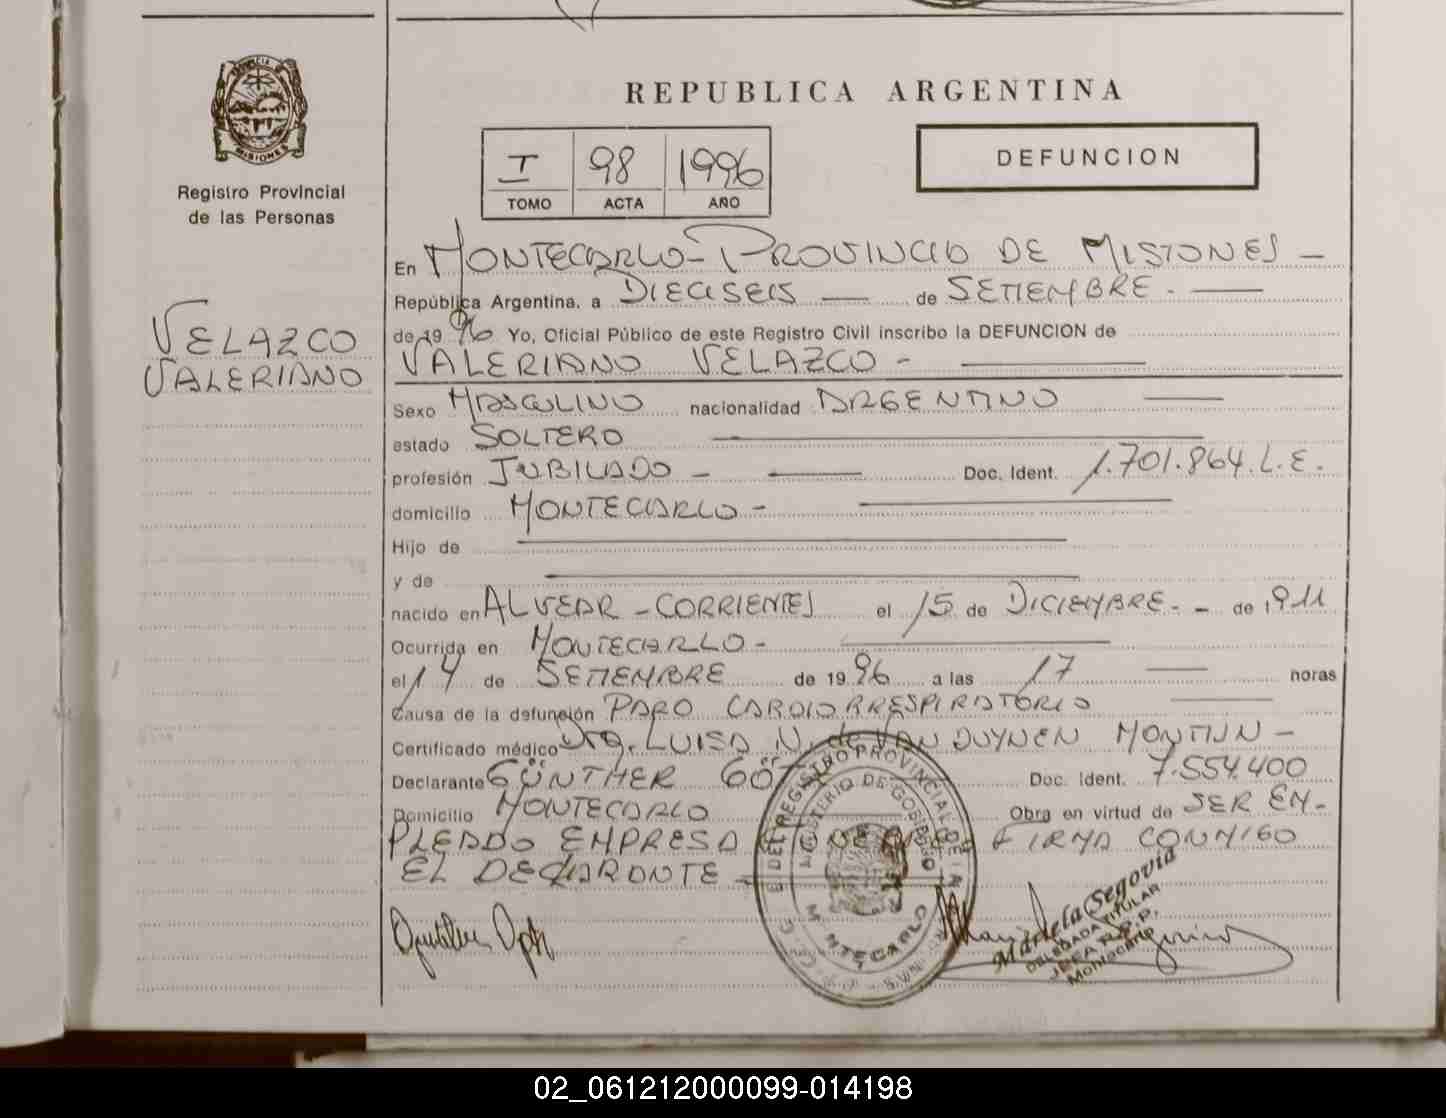 REPUBLICA ARGENTINA
PROVINCIA
MISIONES
Registro Provincial
de las Personas
I 98 1996
TOMO ACTA AÑO
DEFUNCION
VELAZCO
VALERIANO
En MONTECARLO - PROVINCIA DE MISIONES -
República Argentina, a DIECISEIS — de SETIEMBRE. —
de 1996 Yo, Oficial Público de este Registro Civil inscribo la DEFUNCION de
VALERIANO VELAZCO - —
Sexo MASCULINO nacionalidad ARGENTINO —
estado SOLTERO —
profesión JUBILADO - — Doc. Ident. 1.701.864. L.E.
domicilio MONTECARLO - —
Hijo de —
y de —
nacido en ALVEAR - CORRIENTES el 15 de DICIEMBRE. - de 1911
Ocurrida en MONTECARLO - —
el 14 de SETIEMBRE de 1996 a las 17 — horas
Causa de la defunción PARO CARDIORRESPIRATORIO —
Certificado médico Dra. LUISA N. de VAN DUYNEN MONTIJN -
Declarante GÜNTHER Doc. Ident. 7.554.400
Domicilio MONTECARLO Obra en virtud de SER EM-
PLEADO EMPRESA FIRMA CONMIGO
EL DECLARANTE -
REGISTRO PROVINCIAL DE LAS
MINISTERIO DE GOBIERNO
MONTECARLO
Mariela Segovia
DELEGADA TITULAR
JEFA R.P.P.
Montecarlo
02_061212000099-014198